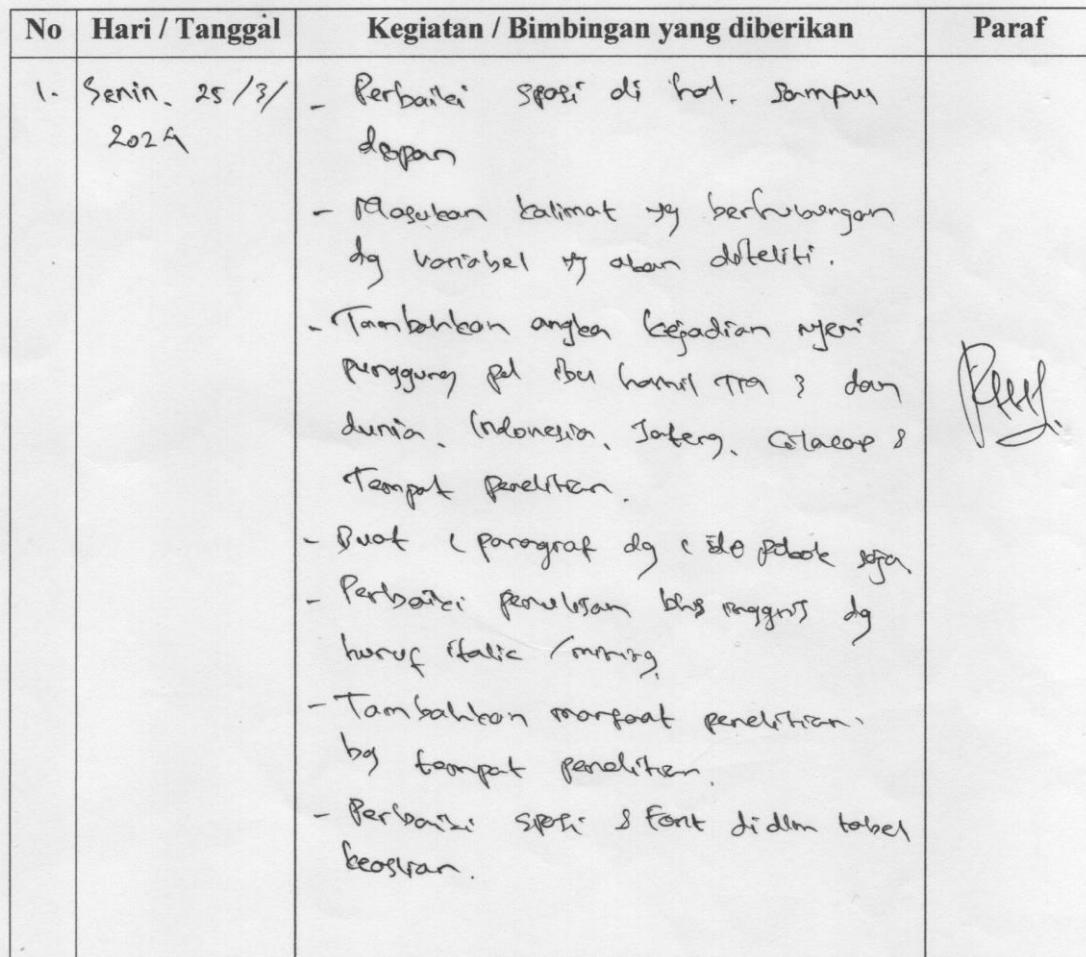 No Hari / Tanggal Kegiatan / Bimbingan yang diberikan Paraf
1. Senin, 25/3/
2024
- Perbaiki spasi di hal. sampul
depan
- Masukan kalimat yg berhubungan
dg variabel yg akan diteliti.
- Tambahkan angka kejadian nyeri
punggung pd ibu hamil TM 3 dari
dunia, Indonesia, Jateng, Cilacap &
Tempat penelitian.
- Buat 1 paragraf dg 1 ide pokok saja
- Perbaiki penulisan bhs inggris dg
huruf italic /miring
- Tambahkan manfaat penelitian
bg tempat penelitian.
- Perbaiki spasi & Font didlm tabel
keaslian.